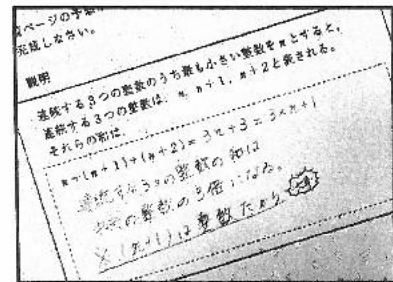 ページの予想
完成しなさい。
説明
連続する3つの整数のうち最も小さい整数をnとすると,
連続する3つの整数は, n, n+1, n+2と表される。
それらの和は,
n+(n+1)+(n+2)=3n+3=3×n+1
連続する3つの整数の和は
中央の整数の3倍になる。
(n+1)は整数だから